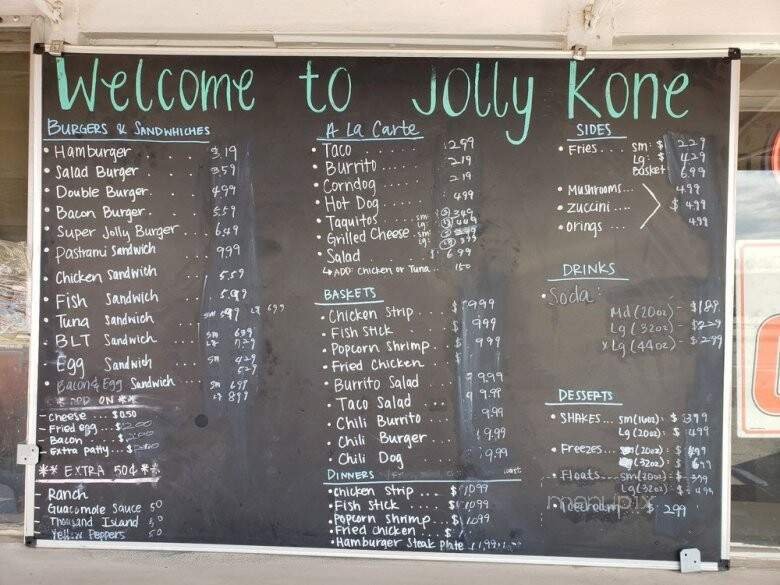 Welcome to Jolly Kone
BURGERS & SANDWHICHES
• Hamburger .... 3.19
• Salad Burger ... 3.59
• Double Burger ... 4.99
• Bacon Burger ... 5.59
• Super Jolly Burger .. 6.49
• Pastrami Sandwich ... 9.99
• Chicken Sandwich ... 5.59
• Fish Sandwich ... 5.99
• Tuna Sandwich ... sm 5.97 Lg 6.99
• BLT Sandwich ... sm 6.39
Lg 7.29
• Egg Sandwich ... sm 4.29
5.29
• Bacon & Egg Sandwich ... sm 6.99
Lg 8.99
** ADD ON **
- Cheese ... $0.50
- Fried egg ... $2.00
- Bacon ... $2.00
- Extra patty ...
** EXTRA 50¢ **
- Ranch
- Guacomole Sauce 50
- Thousand Island 50
- Yellow Peppers 50
A La Carte
• Taco ...... 2.99
• Burrito ..... 2.19
• Corndog ..... 2.19
• Hot Dog .... 4.99
• Taquitos ..... sm
Lg
• Grilled Cheese .. sm
Lg
• Salad ........ $ 6.99
↳ ADD: Chicken or Tuna .. 1.50
BASKETS
• Chicken Strip .. $ 9.99
• Fish Stick ..... $ 9.99
• Popcorn Shrimp .. $ 9.99
• Fried Chicken ... $
• Burrito Salad ... 9.99
• Taco Salad ... 9.99
• Chili Burrito ... 9.99
• Chili Burger ... 9.99
• Chili Dog ... 9.99
DINNERS
• Chicken Strip ... $ 10.99
• Fish Stick .... $ 10.99
• Popcorn Shrimp ... $ 10.99
• Fried Chicken ... $
• Hamburger Steak Plate
SIDES
• Fries .... sm: $ 2.29
Lg: $ 4.29
Basket 6.99
• Mushrooms ... 4.99
• Zuccini .... $ 4.99
• Orings .... 4.99
DRINKS
• Soda:
Md (20oz) - $1.89
Lg (32oz) - $2.29
x Lg (44oz) - $2.99
DESSERTS
• SHAKES ... sm (16oz): $ 3.99
Lg (20oz): $ 4.99
• Freezes ... (20oz): $ 4.99
(32oz): $ 6.99
• Floats ... sm (20oz): $ 3.99
Lg (32oz): $ 4.99
• Icecream: $ 2.99
menupix